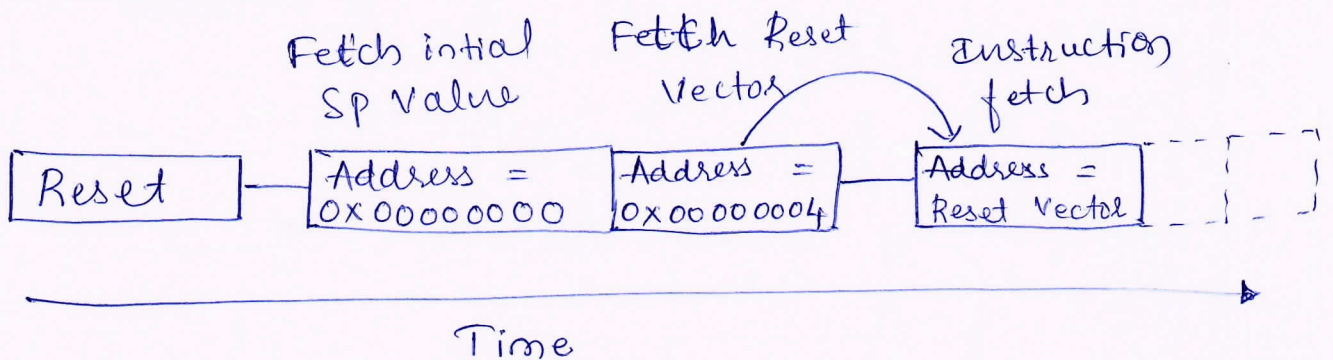 Fetch intial
SP Value
Fetch Reset
Vector
Instruction
fetch
Reset
Address =
0x00000000
Address =
0x00000004
Address =
Reset Vector
Time